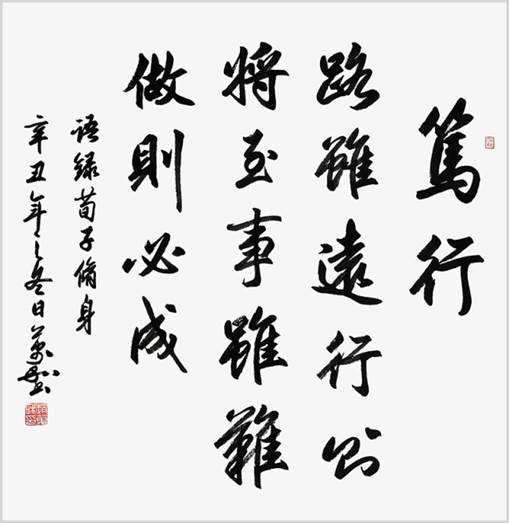 篤行
路雖遠行则
將至事雖難
做則必成
語録荀子脩身
辛丑年之冬日